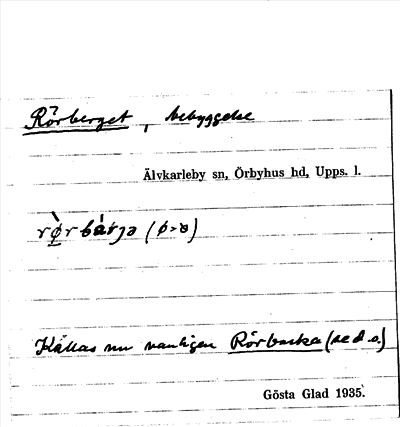 Rörberget, bebyggelse
Älvkarleby sn, Örbyhus hd, Upps. l.
rø̀rbárjə (ø>ɵ)
Kallas nu vanligen Rörbacka (se d.o.)
Gösta Glad 1935.